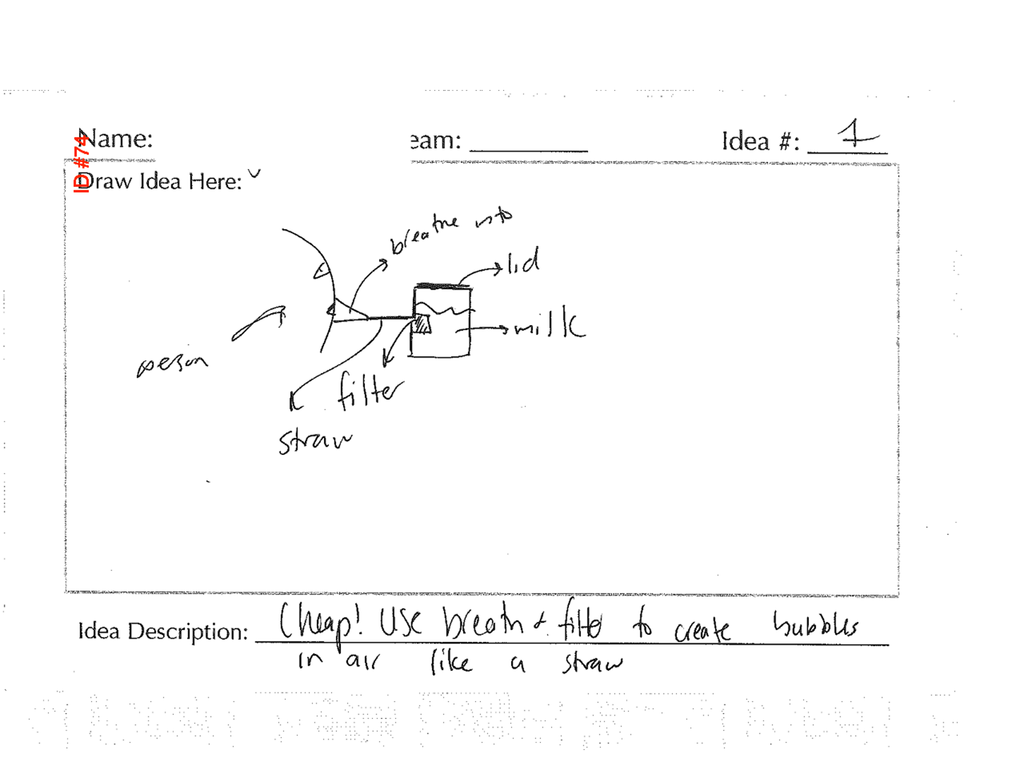 ID #74
Name:
eam:
Idea #: 1
Draw Idea Here:
breathe into
lid
milk
person
filter
straw
Idea Description: Cheap! Use breath + filter to create bubbles
in air like a straw